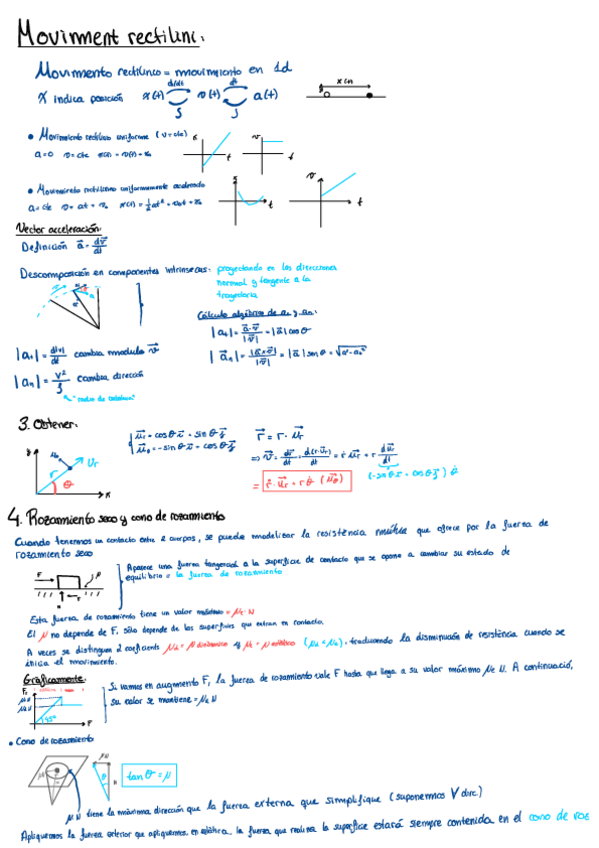 Movinment rectilini:
Movimiento rectilineo = movimiento en 1d
d/dt dt
X indica posición x(t) v(t) a(t)
∫ ∫
x(t)
• Movimiento rectilineo uniforme (v=cte)
a=0 v=cte x(t) = v(t) + x₀
x t v t
• Movimiento rectilineo uniformemente acelerado
a=cte v = at + v₀ x(t) = ½at² + v₀t + x₀
x t v t
Vector acceleración:
Definición a⃗ = dv⃗/dt
Descomposición en componentes intrínsecas: proyectando en las direcciones
normal y tangente a la
trayectoria
Cálculo algébrico de at y an:
|at| = a⃗·v⃗/|v⃗| = |a⃗| cos θ
|at| = d|v|/dt cambia modulo v⃗
|a⃗n| = |a⃗×v⃗|/|v⃗| = |a⃗| sen θ = √a²-at²
|an| = v²/ρ cambia dirección
3. Obtener:
u⃗r = cos θ i⃗ + sin θ j⃗
u⃗θ = -sin θ i⃗ + cos θ j⃗
r⃗ = r · u⃗r
=> v⃗ = dr⃗/dt = d(r·u⃗r)/dt = ṙ u⃗r + r du⃗r/dt
(-sin θ i⃗ + cos θ j⃗) θ̇
= ṙ · u⃗r + r θ̇ (u⃗θ)
y uθ ur r θ x
4. Rozamiento seco y cono de rozamiento
Cuando tenemos un contacto entre 2 cuerpos, se puede modelizar la resistència mútua que ofrece por la fuerza de
rozamiento seco
Aparece una fuerza tangencial a la superficie de contacto que se opone a cambiar su estado de
equilibrio = la fuerza de rozamiento
F μ
Esta fuerza de rozamiento tiene un valor máximo = μe·N
El μ no depende de F, sólo depende de las superficies que entran en contacto.
A veces se distinguen 2 coeficients μd = μ dinámico y μe = μ estático (μd < μe), traduciendo la disminución de resistència cuando se
inicia el movimiento.
Gráficamente:
Si vamos en augmento F, la fuerza de rozamiento vale F hasta que llega a su valor máximo μe N. A continuació,
su valor se mantiene = μd N
μe N
μd N
45°
F
• Cono de rozamiento
μN
θ N
tan θ = μ
μN tiene la máxima dirección que la fuerza externa que simplifique (suponemos ∀ direc.)
Apliquemos la fuerza exterior que apliquemos, en estática, la fuerza que realiza la superficie estará siempre contenida en el cono de roz